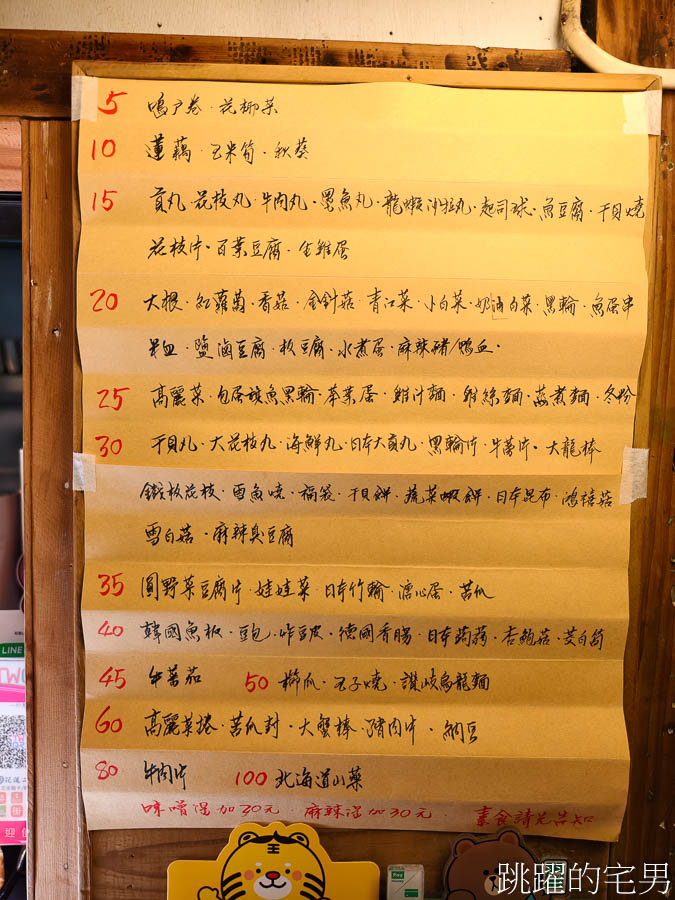 5 鳴戶卷．花椰菜
10 蓮藕．玉米筍．秋葵
15 貢丸．花枝丸．牛肉丸．墨魚丸．龍蝦沙拉丸．起司球．魚豆腐．干貝燒
花枝片．百葉豆腐．生雞蛋
20 大根．紅蘿蔔．香菇．金針菇．青江菜．小白菜．奶油白菜．黑輪．魚蛋串
米血．鹽滷豆腐．板豆腐．水煮蛋．麻辣豬/鴨血．
25 高麗菜．包蛋旗魚黑輪．茶葉蛋．雞汁麵．雞絲麵．蒸煮麵．冬粉
30 干貝丸．大花枝丸．海鮮丸．日本大貢丸．黑輪片．牛蒡片．大龍棒
鐵板花枝．香魚燒．福袋．干貝餅．蔬菜蝦餅．日本昆布．鴻禧菇
雪白菇．麻辣臭豆腐
35 圓野菜豆腐片．娃娃菜．日本竹輪．溏心蛋．苦瓜
40 韓國魚板．豆包．炸豆皮．德國香腸．日本蒟蒻．杏鮑菇．茭白筍
45 牛蕃茄 50 櫛瓜．玉子燒．讚岐烏龍麵
60 高麗菜捲．苦瓜封．大蟹棒．豬肉片．納豆
80 牛肉片 100 北海道山藥
味噌湯加30元．麻辣湯加30元． 素食請先告知
LINE
Pay
跳躍的宅男